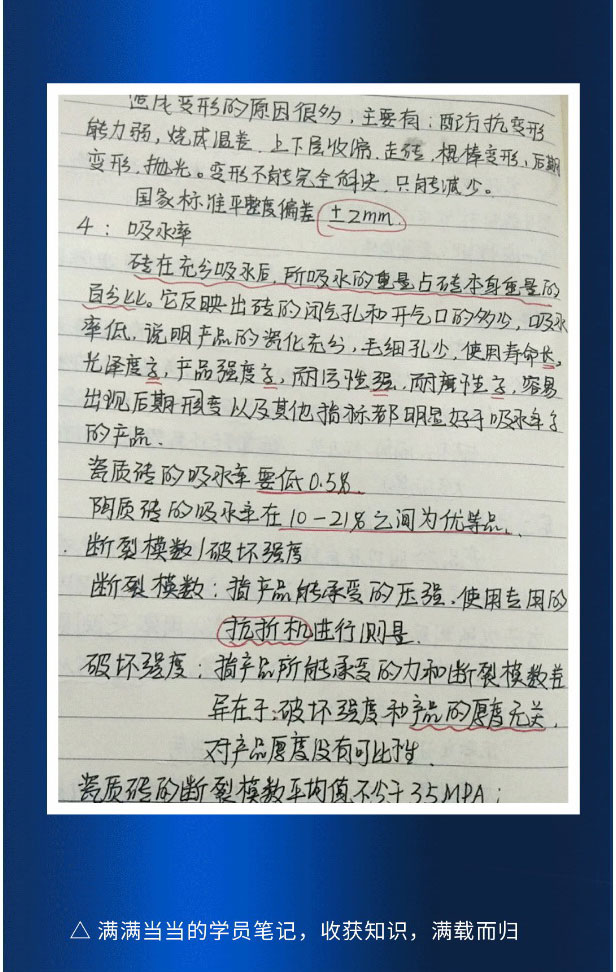 造成变形的原因很多，主要有：配方抗变形
能力弱，烧成温差，上下层收缩，走砖，棍棒变形，后期
变形，抛光。变形不能完全解决，只能减少。
国家标准平整度偏差 ±2mm.
4：吸水率
砖在充分吸水后，所吸水的重量占砖本身重量的
百分比。它反映出砖的闭气孔和开气口的多少，吸水
率低，说明产品的瓷化充分，毛细孔少，使用寿命长，
光泽度高，产品强度高，耐污性强，耐磨性高，容易
出现后期形变以及其他指标都明显好于吸水率高
的产品.
瓷质砖的吸水率要低0.5%.
陶质砖的吸水率在10-21%之间为优等品.
断裂模数/破坏强度
断裂模数：指产品能承受的压强.使用专用的
抗折机进行测量.
破坏强度：指产品所能承受的力和断裂模数差
异在于：破坏强度和产品的厚度无关.
对产品厚度没有可比性.
瓷质砖的断裂模数平均值不少于35MPA；
△ 满满当当的学员笔记，收获知识，满载而归